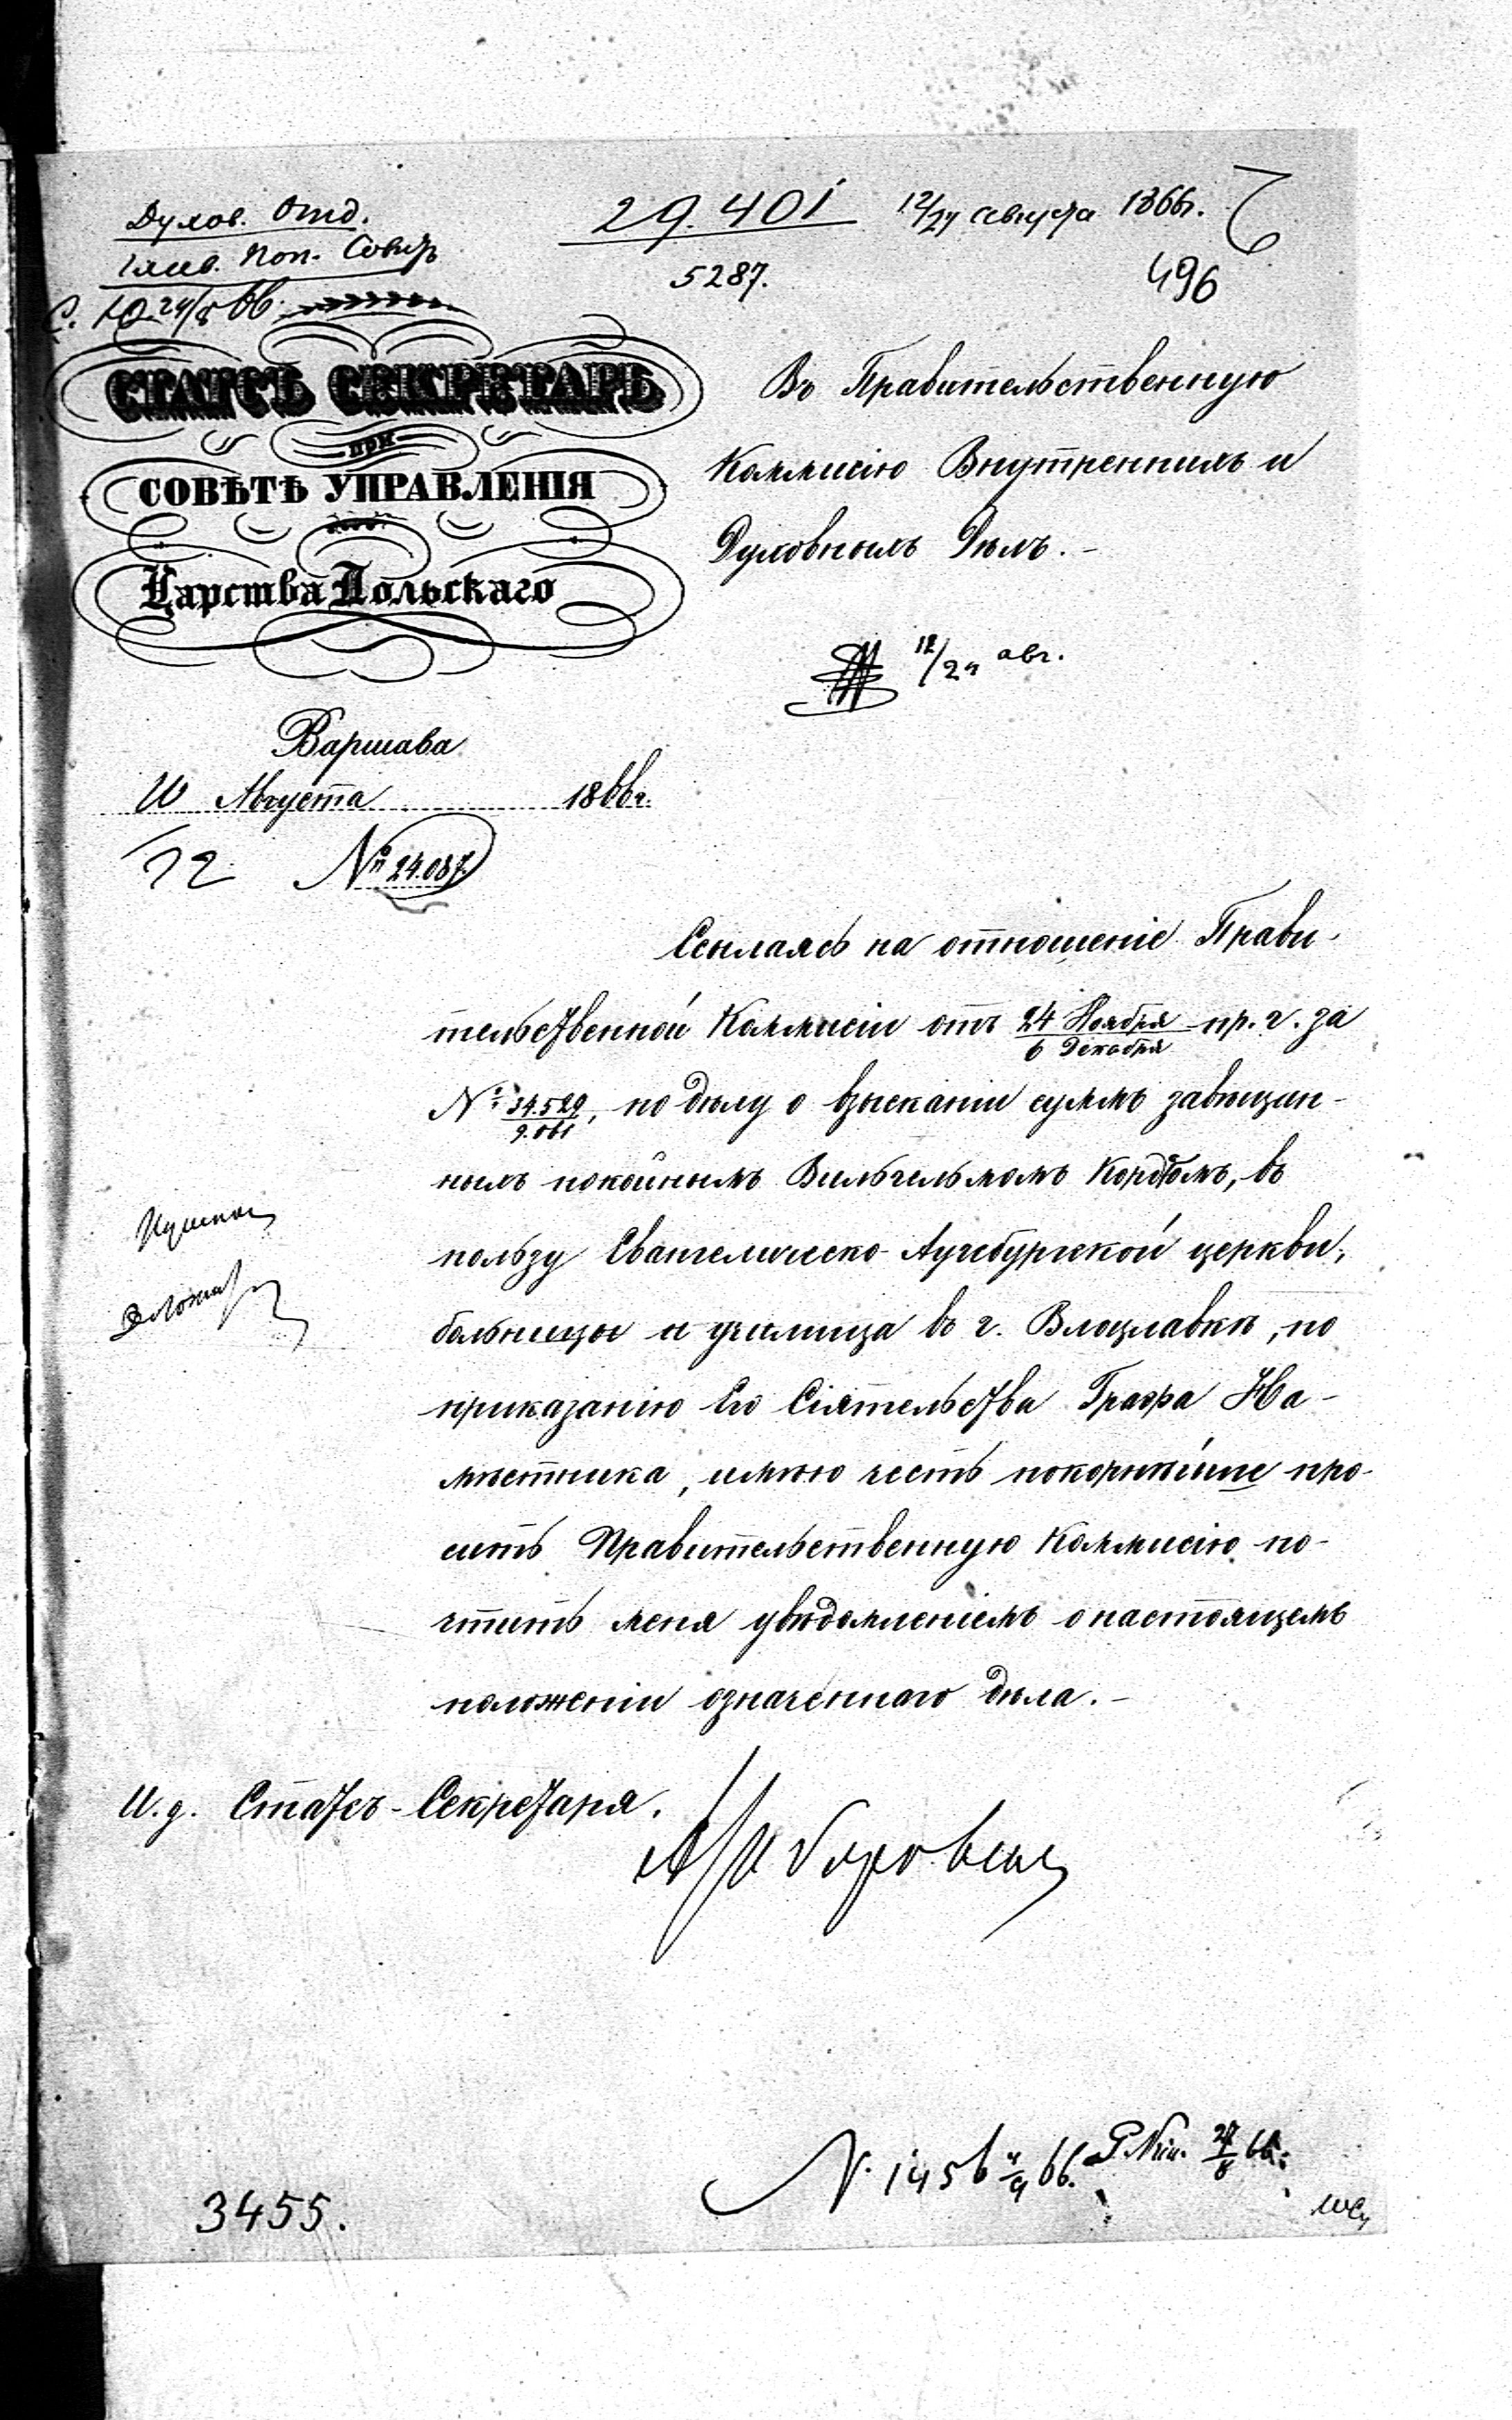 Духов. Отд.
Глав. Поп. Совѣтъ
29.401 12/24 августа 1866г.
5287.
496
СТАТСЪ СЕКРЕТАРЬ
при
СОВѢТѢ УПРАВЛЕНІЯ
Царства Польскаго
Въ Правительственную
Коммисію Внутреннихъ и
Духовныхъ Дѣлъ. –
12/24 авг.
Варшава
10 Августа 1866г.
22 № 24.087.
Ссылаясь на отношеніе Прави-
тельственной Коммисіи отъ 24 Ноября/6 Декабря пр. г. за
№ 34.529/9.061, по дѣлу о взысканіи суммъ завѣщан-
ныхъ покойнымъ Вильгельмомъ, въ
пользу Евангелическо-Аугсбургской церкви,
больницы и училища въ г. Влоцлавкѣ, по
приказанію Его Сіятельства Графа На-
мѣстника, имѣю честь покорнѣйше про-
сить Правительственную Коммисію по-
чтить меня увѣдомленіемъ о настоящемъ
положеніи означеннаго дѣла. –
И. д. Статсъ-Секретаря.
N. 1456 4/9 66. 27/8 66.
3455.